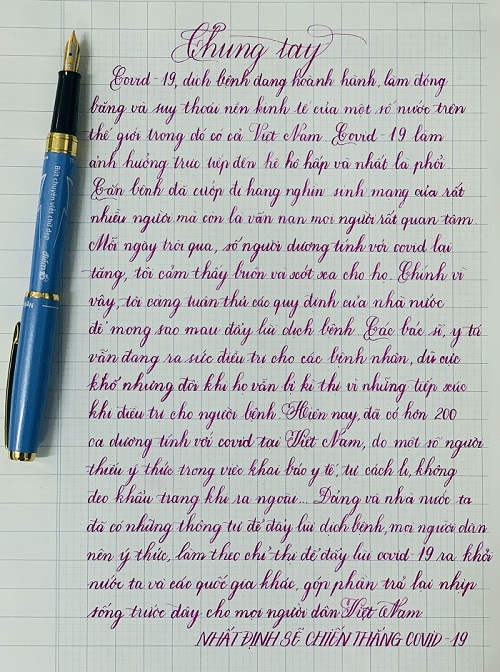 Chung tay
Covid-19, dịch bệnh đang hoành hành, làm đóng
băng và suy thoái nền kinh tế của một số nước trên
thế giới trong đó có cả Việt Nam. Covid-19 làm
ảnh hưởng trực tiếp đến hệ hô hấp và nhất là phổi.
Căn bệnh đã cướp đi hàng nghìn sinh mạng của rất
nhiều người mà còn là vấn nạn mọi người rất quan tâm.
Mỗi ngày trôi qua, số người dương tính với covid lại
tăng, tôi cảm thấy buồn và xót xa cho họ. Chính vì
vậy, tôi càng tuân thủ các quy định của nhà nước
để mong sao mau đẩy lùi dịch bệnh. Các bác sĩ, y tá
vẫn đang ra sức điều trị cho các bệnh nhân, dù cực
khổ nhưng đôi khi họ vẫn bị kì thị vì những tiếp xúc
khi điều trị cho người bệnh. Hiện nay, đã có hơn 200
ca dương tính với covid tại Việt Nam, do một số người
thiếu ý thức trong việc khai báo y tế, tự cách li, không
đeo khẩu trang khi ra ngoài... Đảng và nhà nước ta
đã có những thông tư để đẩy lùi dịch bệnh, mọi người dân
nên ý thức, làm theo chỉ thị để đẩy lùi covid-19 ra khỏi
nước ta và các quốc gia khác, góp phần trả lại nhịp
sống trước đây cho mọi người dân Việt Nam
NHẤT ĐỊNH SẼ CHIẾN THẮNG COVID-19
Bút chuyên viết chữ đẹp